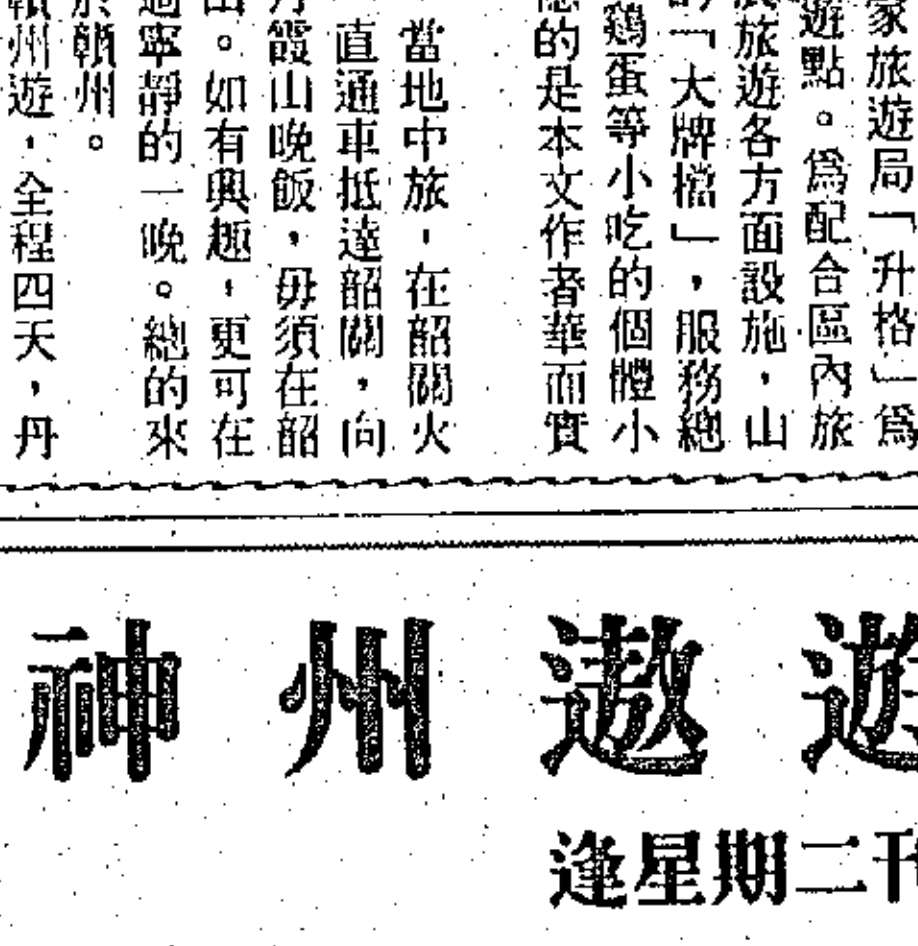 家旅遊局「升格」爲
遊點。爲配合區內旅
旅遊各方面設施，山
「大牌檔」，服務總
鷄蛋等小吃的個體小
的是本文作者華而實
當地中旅，在韶關火
直通車抵達韶關，向
霞山晚飯，毋須在韶
。如有興趣，更可在
寧靜的一晚。總的來
於贛州。
州遊，全程四天，丹
神州遨遊
逢星期二刊